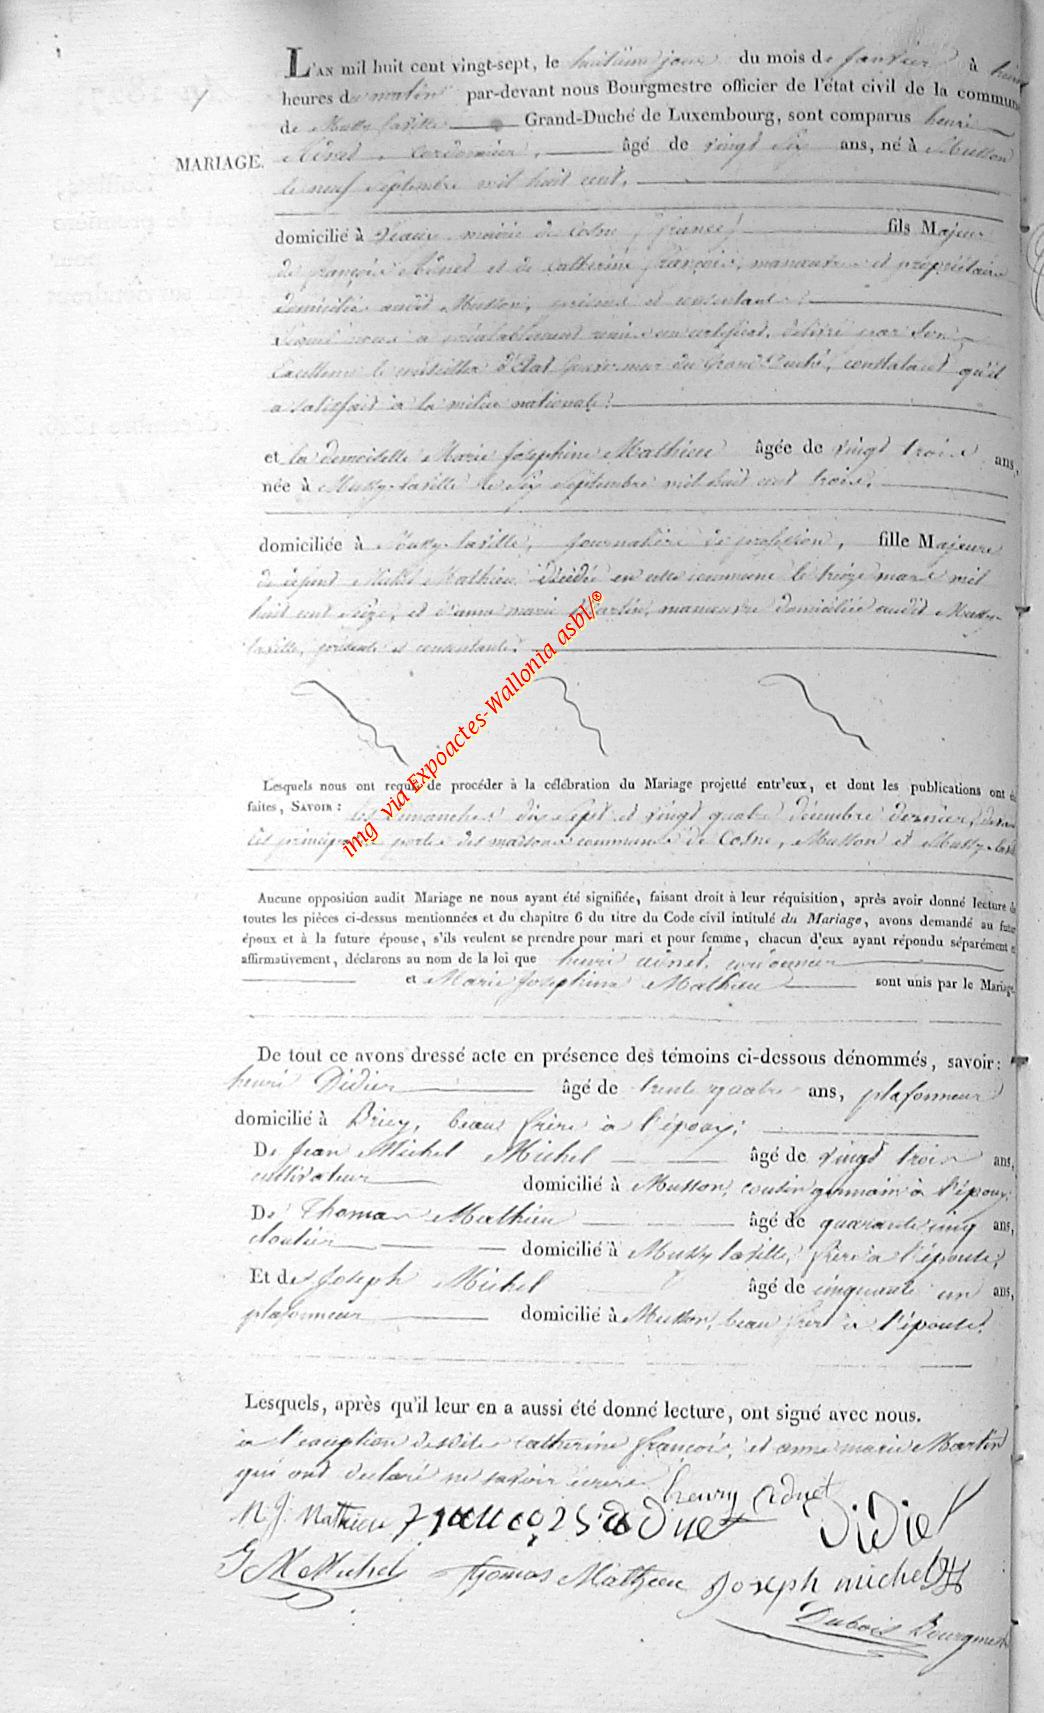 L'an mil huit cent vingt-sept, le huitième jour du mois de Janvier à
heures du matin par-devant nous Bourgmestre officier de l'état civil de la commune
de Mussy laville Grand-Duché de Luxembourg, sont comparus henri
MARIAGE.
Adnet, cordonnier, âgé de vingt six ans, né à Musson
le neuf Septembre mil huit cent.
domicilié à mairie de Cosne, (france) fils Majeur
de françois Adnet et de Catherine françois, manœuvre et propriétaire
domiciliés audit Musson, présens et consentans;
Lequel nous a préalablement remis un certificat, délivré par Son
Excellence le conseiller d'Etat Gouverneur du Grand-Duché, constatant qu'il
a satisfait à la milice nationale;
et la demoiselle Marie Josephine Mathieu âgée de vingt trois ans,
née à Mussy-laville le six Septembre mil huit cent trois.
domiciliée à Mussy-laville, Journalière de profession, fille Majeure
de défunt Mathieu décédé en cette commune le treize mars mil
huit cent seize, et d'anne marie Martin, manœuvre domiciliée audit Mussy-
laville, présente et consentante.
img via Expoactes-Wallonia asbl/®
Lesquels nous ont requis de procéder à la célébration du Mariage projetté entr'eux, et dont les publications ont été
faites, Savoir : les dimanches dix sept et vingt quatre décembre dernier, devant
les principales portes des maisons communes de Cosne, Musson et Mussy-laville
Aucune opposition audit Mariage ne nous ayant été signifiée, faisant droit à leur réquisition, après avoir donné lecture de
toutes les pièces ci-dessus mentionnées et du chapitre 6 du titre du Code civil intitulé du Mariage, avons demandé au futur
époux et à la future épouse, s'ils veulent se prendre pour mari et pour femme, chacun d'eux ayant répondu séparément et
affirmativement, déclarons au nom de la loi que henri adnet, cordonnier
et Marie Josephine Mathieu sont unis par le Mariage.
De tout ce avons dressé acte en présence des témoins ci-dessous dénommés, savoir :
henri Didier âgé de trente quatre ans, plafonneur
domicilié à Briey, beau frère à l'époux;
De Jean Michel Michel âgé de vingt trois ans,
cultivateur domicilié à Musson, cousin germain à l'époux;
De Thomas Mathieu âgé de quarante cinq ans,
cloutier domicilié à Mussy laville, frère à l'épouse;
Et de Joseph Michel âgé de cinquante un ans,
plafonneur domicilié à Musson, beau frère à l'épouse.
Lesquels, après qu'il leur en a aussi été donné lecture, ont signé avec nous.
à l'exception desdites catherine françois, et anne marie Martin
qui ont déclaré ne savoir écrire. henry Adnet
M J. Mathieu françois adnet Didier
J M Michel thomas Mathieu Joseph michel
Dubois Bourgmestre